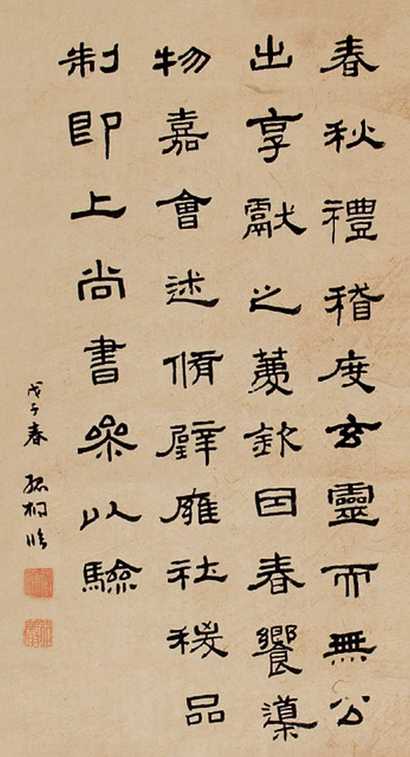 春秋禮稽度玄靈而無公
出享獻之薦欽因春饗導
物嘉會述脩辟雍社稷品
制即上尚書參以驗
戊子春 孤桐臨